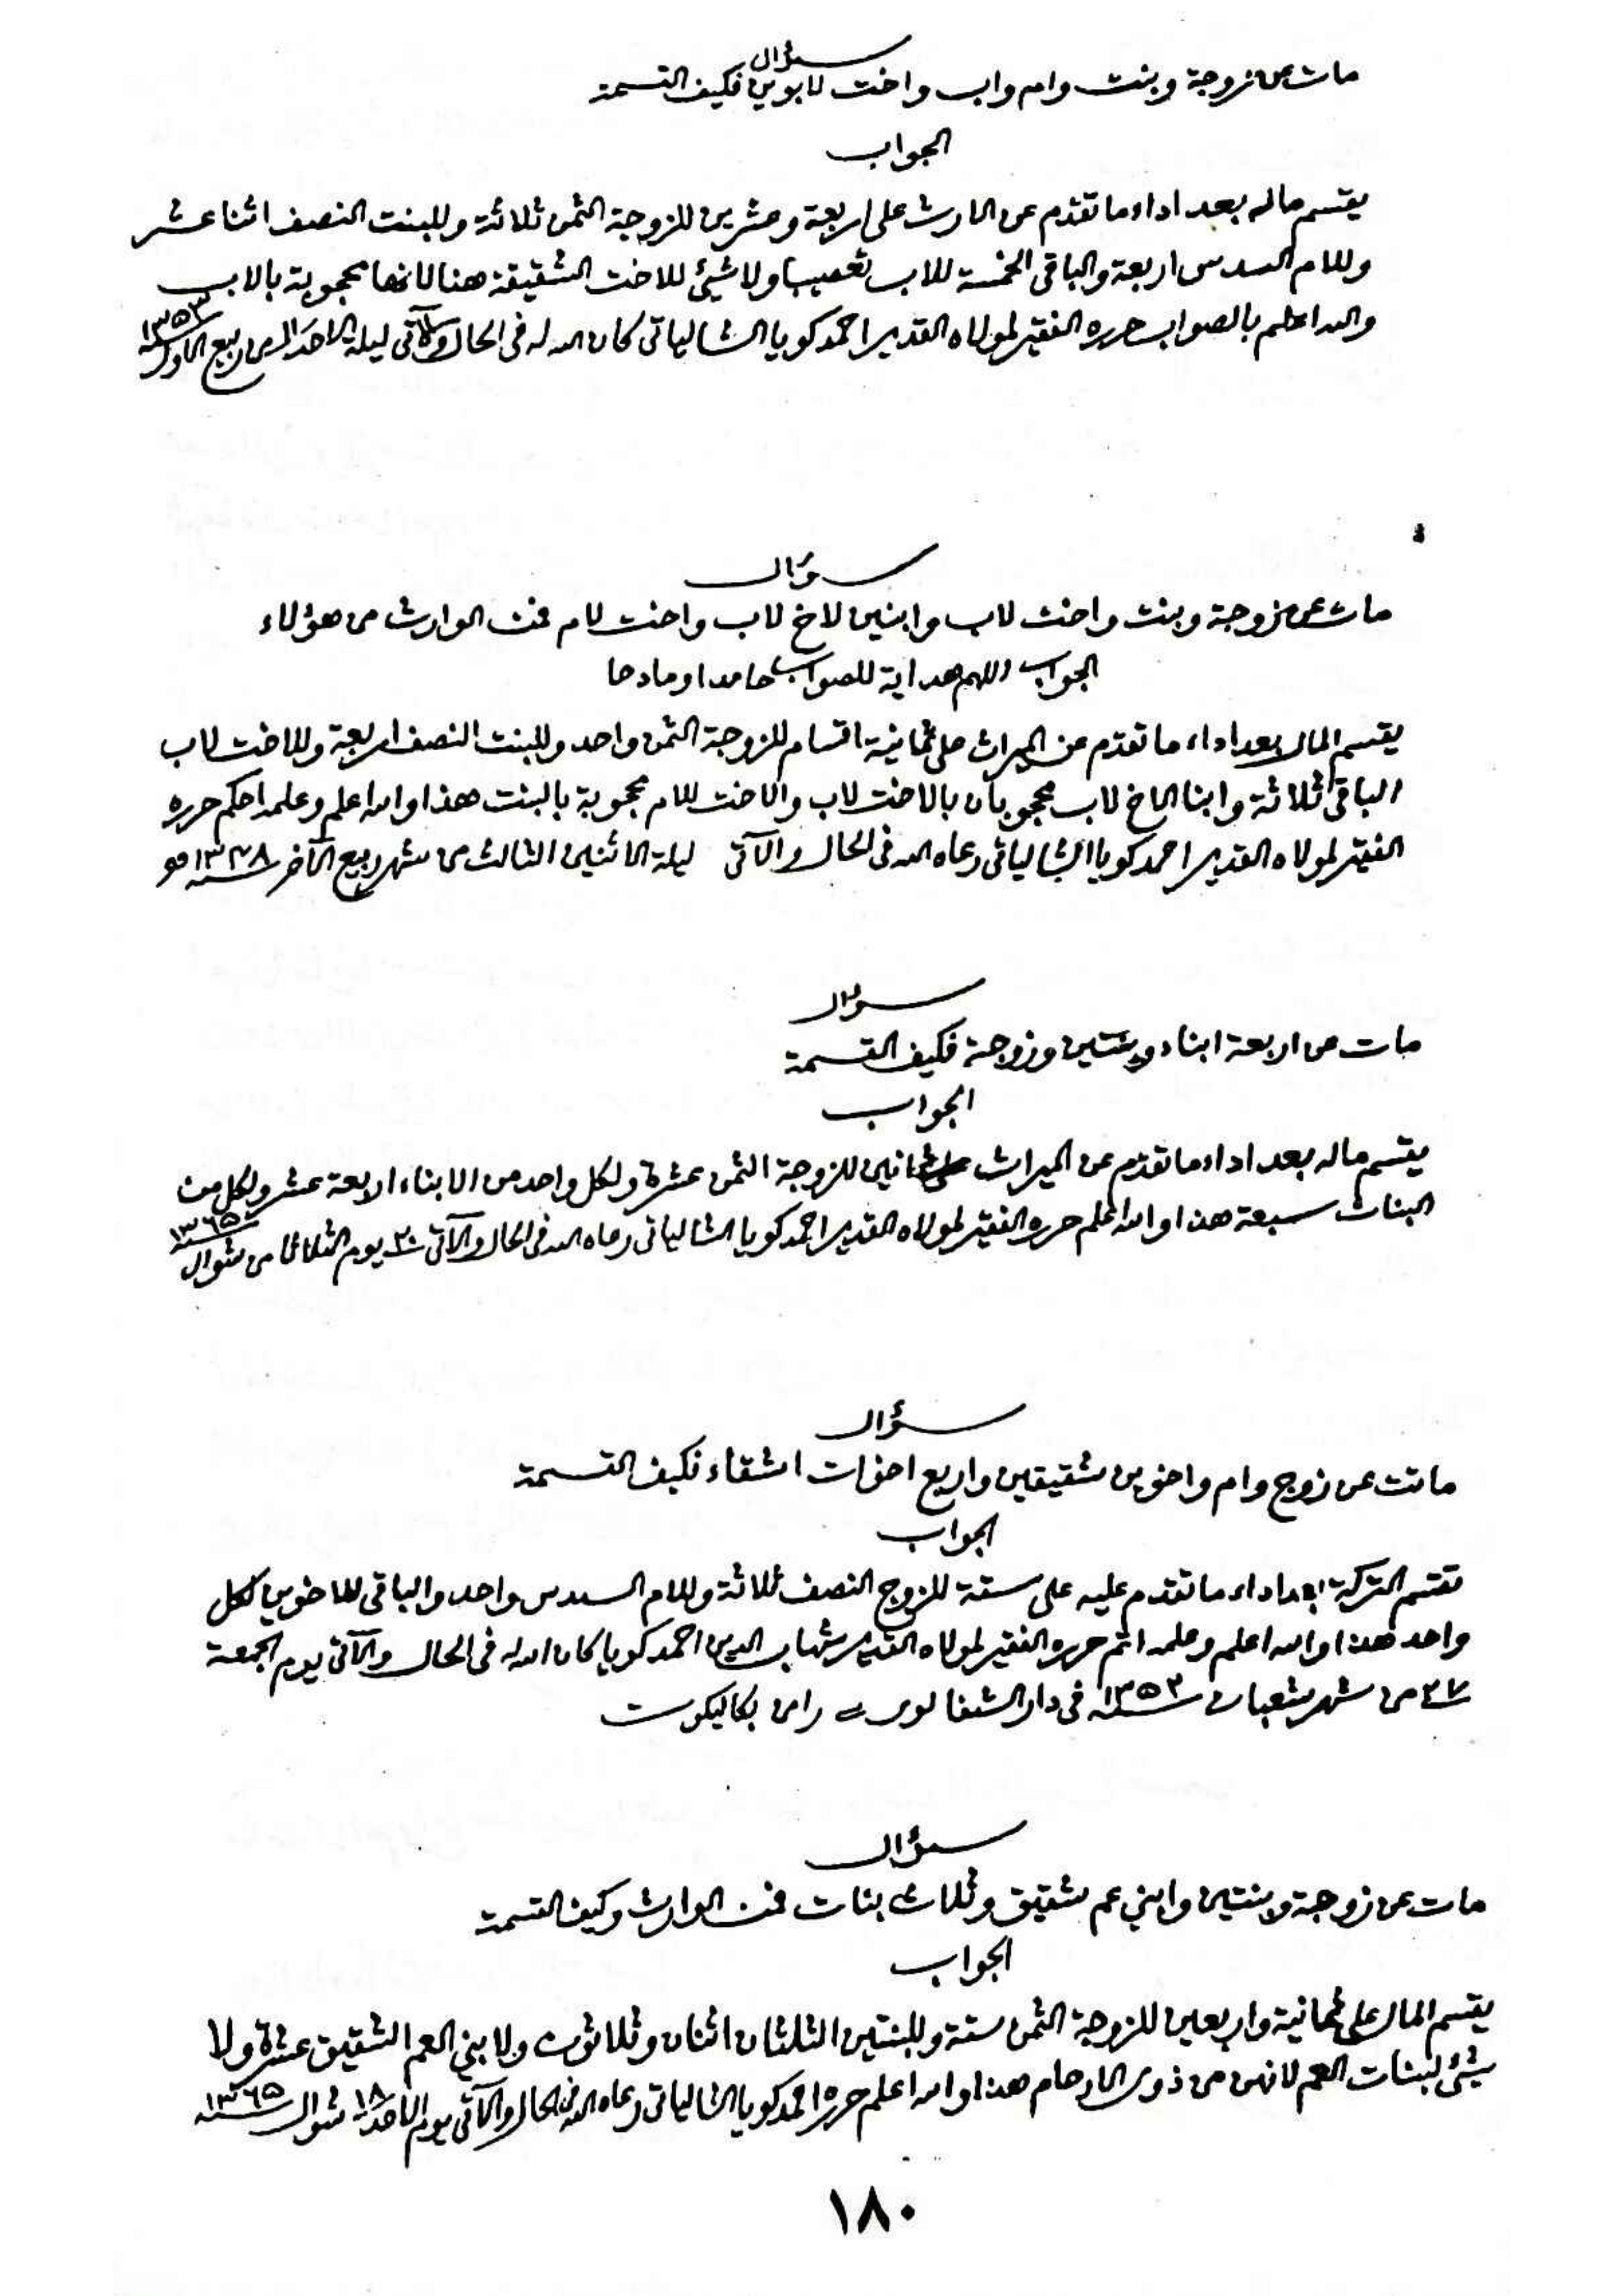 سؤال
مات عن زوجة وبنت وام واب واخت لابوين فكيف القسمة
الجواب
يقسم ماله بعد اداء ما تقدم عن الارث على اربعة وعشرين للزوجة الثمن ثلاثة وللبنت النصف اثنا عشر
وللام السدس اربعة والباقى الخمسة للاب تعصيبا ولا شيئ للاخت الشقيقة هنا لانها محجوبة بالاب
والله اعلم بالصواب حرره الفقير لمولاه القدير احمد كويا الشالياتى كان الله له فى الحال والآتى ليلة الاحد من ربيع الاول ١٣٥٣
سؤال
مات عن زوجة وبنت واخت لاب وابنين لاخ لاب واخت لام فمن الوارث من هؤلاء
الجواب اللهم هداية للصواب حامدا ومادحا
يقسم المال بعد اداء ما تقدم عن الميراث على ثمانية اقسام للزوجة الثمن واحد وللبنت النصف اربعة وللاخت لاب
الباقى ثلاثة وابنا الاخ لاب محجوبان بالاخت لاب والاخت للام محجوبة بالبنت هذا والله اعلم وعلمه احكم حرره
الفقير لمولاه القدير احمد كويا الشالياتى رعاه الله فى الحال والآتى ليلة الاثنين الثالث من شهر ربيع الآخر سنة
سؤال
مات عن اربعة ابناء وبنتين وزوجة فكيف القسمة
الجواب
يقسم ماله بعد اداء ما تقدم عن الميراث على ثمانين للزوجة الثمن عشرة ولكل واحد من الابناء اربعة عشر ولكل من
البنات سبعة هذا والله اعلم حرره الفقير لمولاه القدير احمد كويا الشالياتى رعاه الله فى الحال والآتى ٢٠ يوم الثلاثا من شوال ١٣٦٥
سؤال
ماتت عن زوج وام واخوين شقيقين واربع اخوات اشقاء فكيف القسمة
الجواب
تقسم التركة بعد اداء ما تقدم عليه على ستة للزوج النصف ثلاثة وللام السدس واحد والباقى للاخوين لكل
واحد هذا والله اعلم وعلمه اتم حرره الفقير لمولاه القدير شهاب الدين احمد كويا كان الله له فى الحال والآتى يوم الجمعة
٢٧ من شهر شعبان سنة ١٣٥٣ فى دار الشفا راس بكاليكوت
سؤال
مات عن زوجة وبنتين وابني عم شقيق وثلاث بنات فمن الوارث وكيف القسمة
الجواب
يقسم المال على ثمانية واربعين للزوجة الثمن ستة وللبنتين الثلثان اثنان وثلاثون ولابني العم الشقيق عشرة ولا
شيئ لبنات العم لانهن من ذوى الارحام هذا والله اعلم حرره احمد كويا الشالياتى رعاه الله فى الحال والآتى يوم الاحد ١٨ شوال سنة ١٣٦٥
١٨٠